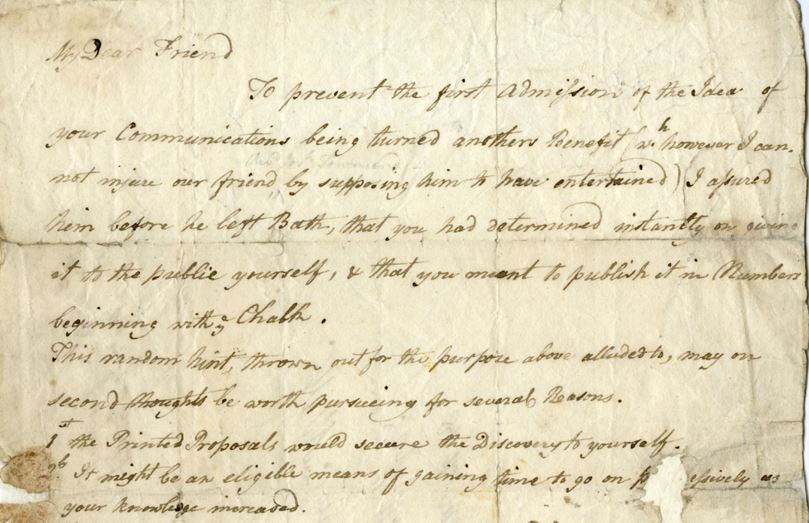 My Dear Friend
To prevent the first Admission of the Idea of
your Communications being turned anothers Benefit (wh. however I can-
not injure our friend by supposing him to have entertained) I assured
him before he left Bath, that you had determined instantly on giving
it to the publie yourself, & that you meant to publish it in Numbers
beginning with ye Chalk.
This random hint, thrown out for the purpose above alluded to, may on
second thoughts be worth pursueing for several Reasons.
1st the Printed Proposals would secure the Discovery to yourself.
It might be an eligible means of gaining time to go on essively as
your knowledge increased.